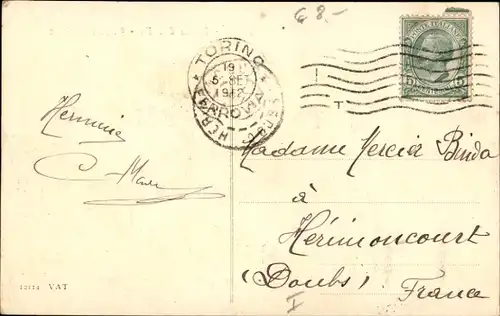 € 8.-
POSTE ITALIANE
TORINO
19
5 SET
1912
FERROVIA
Hermine
C. Marie
Madame Mercier Binda
à
Hérimoncourt
(Doubs). France
12174 VAT
I